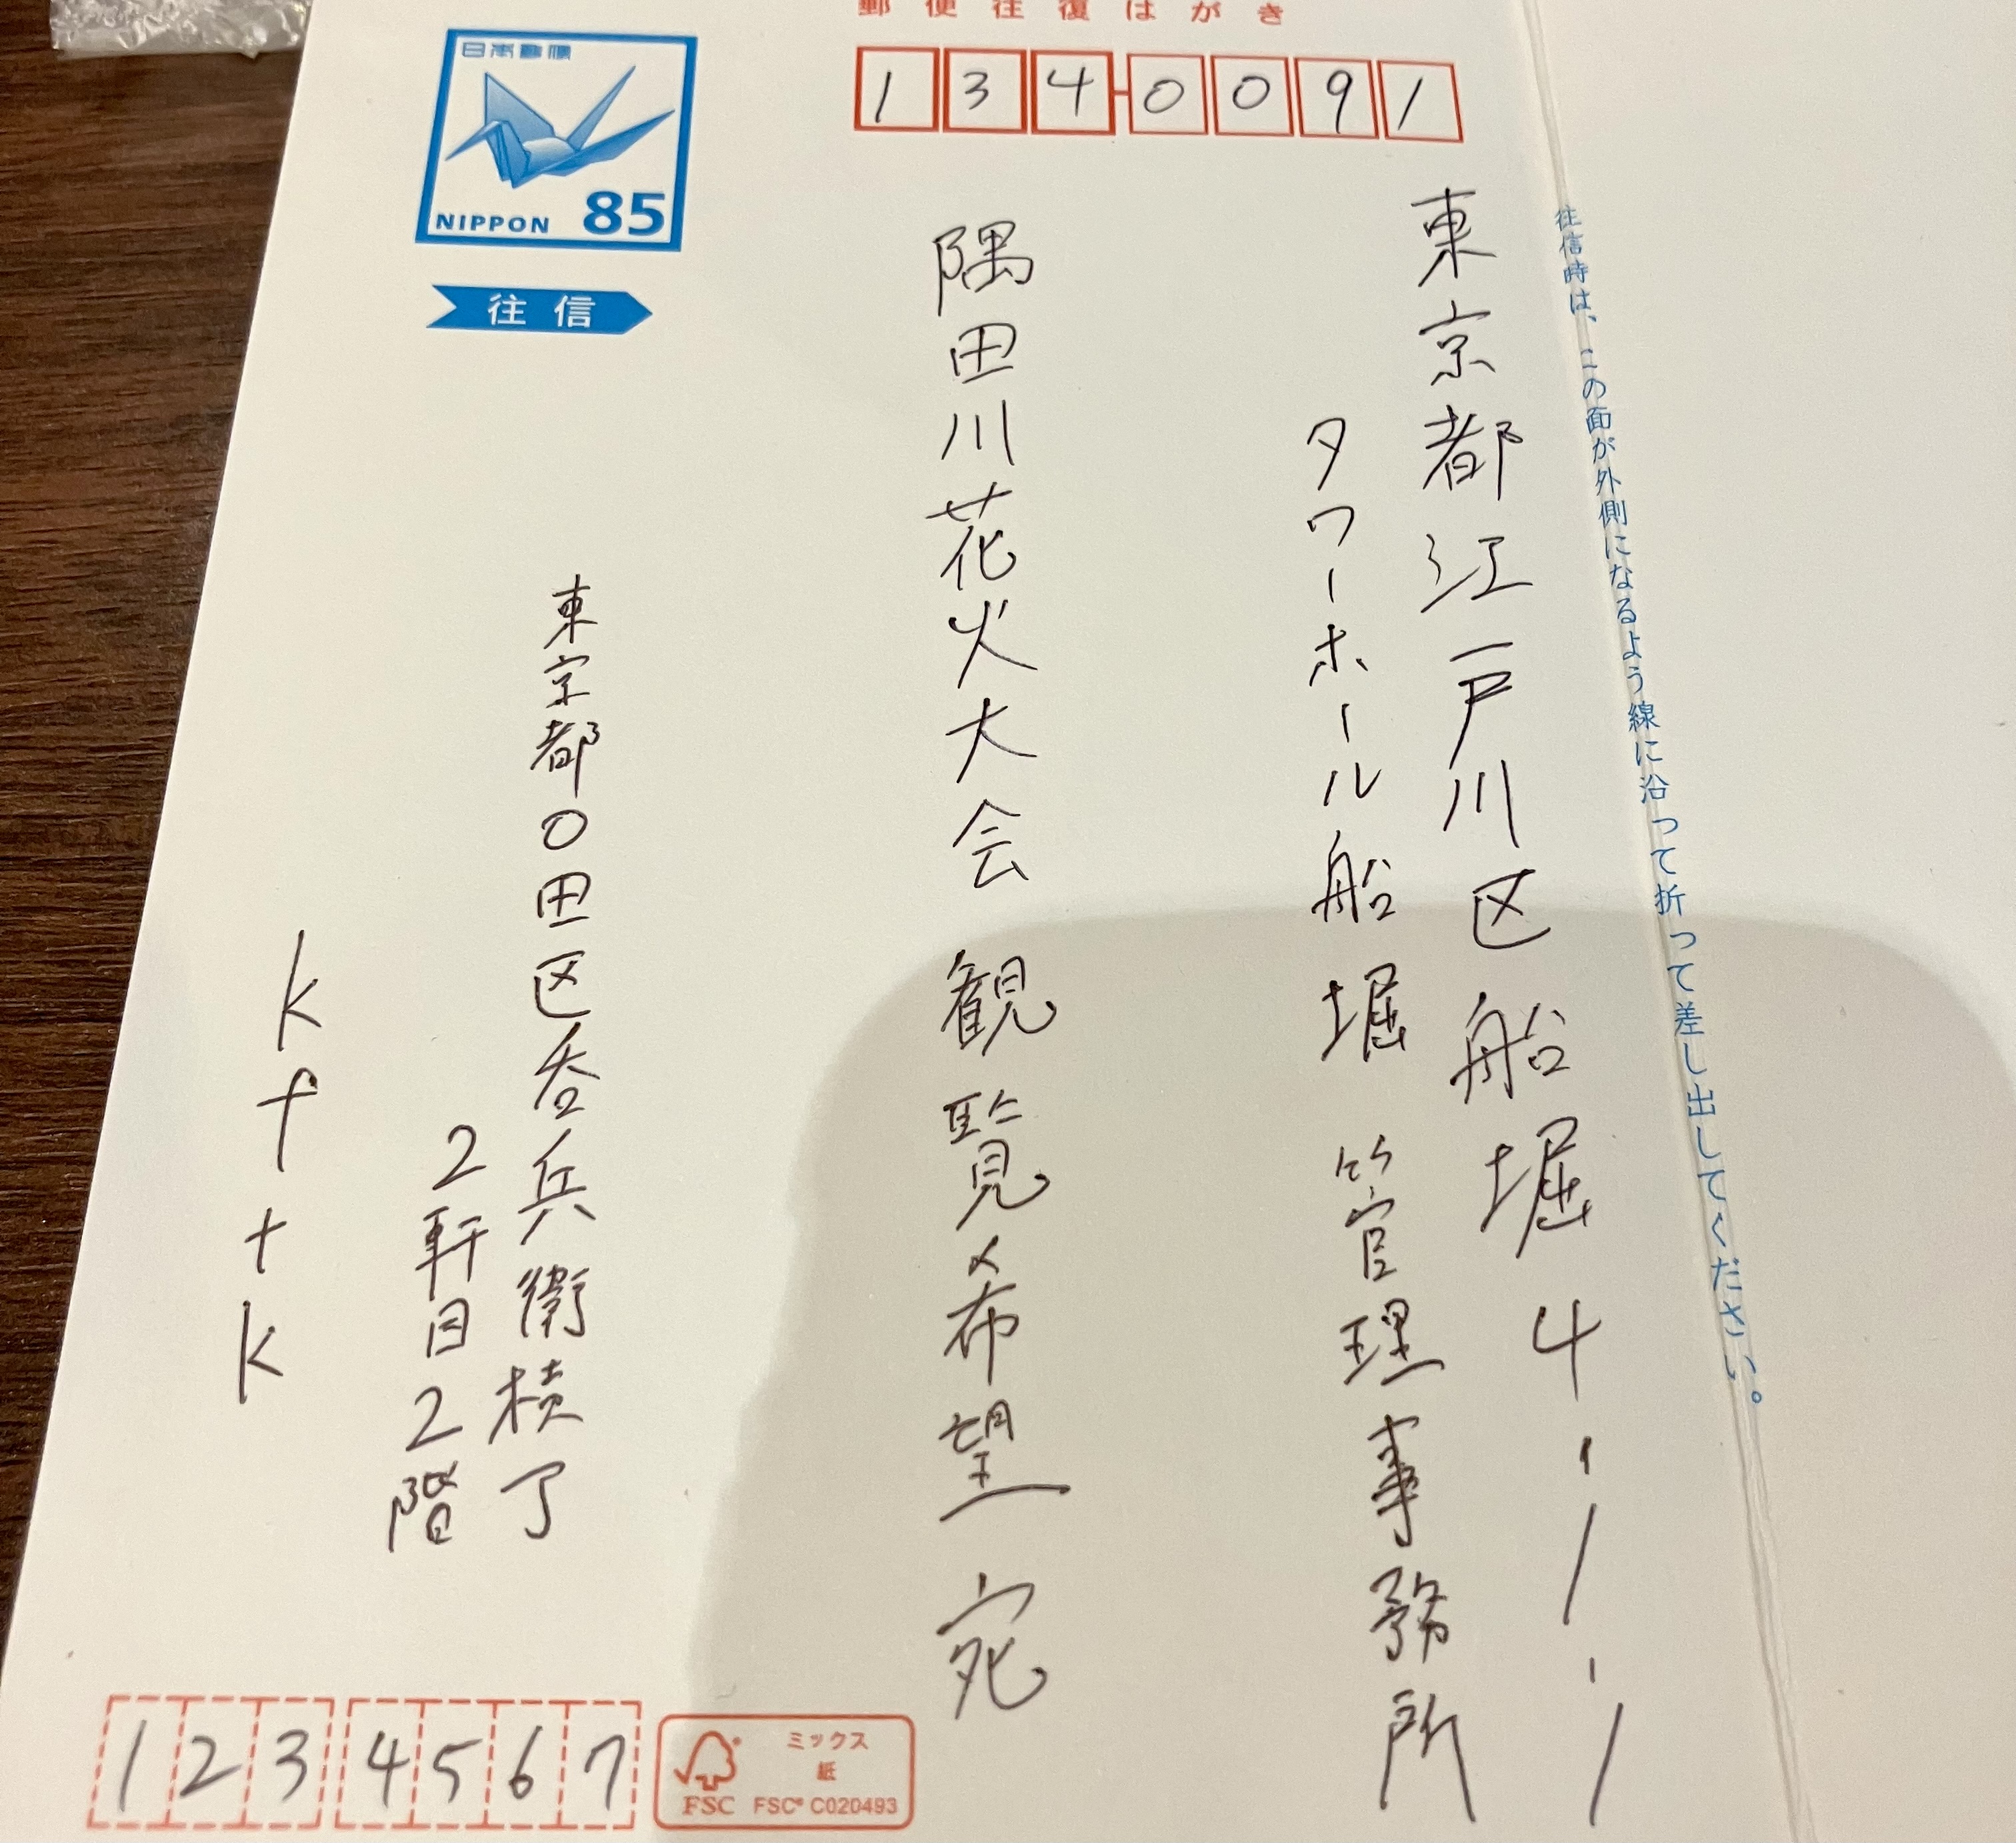 郵便往復はがき
134-0091
往信時は、この面が外側になるよう線に沿って折って差し出してください。
東京都江戸川区船堀4-1-1
タワーホール船堀 管理事務所
隅田川花火大会 観覧希望 宛
日本郵便
NIPPON 85
往信
東京都〇田区呑兵衛横丁
2軒目2階
kftk
1234567
ミックス
紙
FSC FSC® C020493